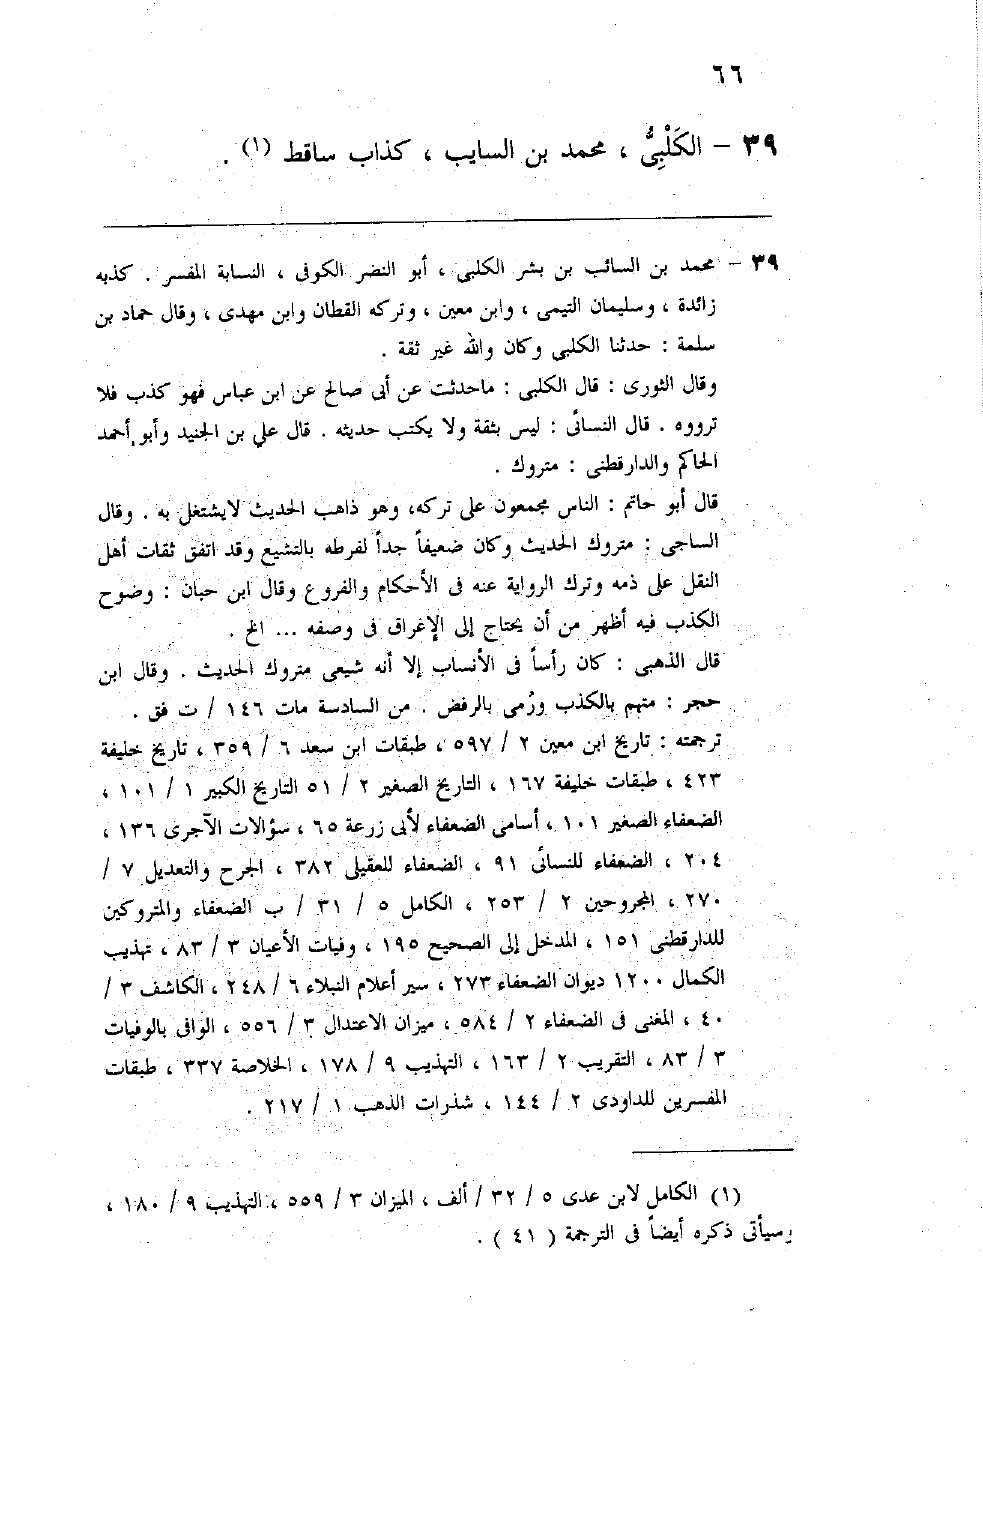 ٦٦
٣٩ - الكَلْبِىُّ ، محمد بن السايب ، كذاب ساقط (١) .
٣٩ - محمد بن السائب بن بشر الكلبى ، أبو النضر الكوفى ، النسابة المفسر . كذبه
زائدة ، وسليمان التيمى ، وابن معين ، وتركه القطان وابن مهدى ، وقال حماد بن
سلمة : حدثنا الكلبى وكان والله غير ثقة .
وقال الثورى : قال الكلبى : ماحدثت عن أبى صالح عن ابن عباس فهو كذب فلا
ترووه . قال النسائى : ليس بثقة ولا يكتب حديثه . قال علي بن الجنيد وأبو أحمد
الحاكم والدارقطنى : متروك .
قال أبو حاتم : الناس مجمعون على تركه، وهو ذاهب الحديث لايشتغل به . وقال
الساجى : متروك الحديث وكان ضعيفاً جداً لفرطه بالتشيع وقد اتفق ثقات أهل
النقل على ذمه وترك الرواية عنه فى الأحكام والفروع وقال ابن حبان : وضوح
الكذب فيه أظهر من أن يحتاج إلى الإغراق فى وصفه ... الخ .
قال الذهبى : كان رأساً فى الأنساب إلا أنه شيعى متروك الحديث . وقال ابن
حجر : متهم بالكذب ورُمى بالرفض . من السادسة مات ١٤٦ / ت فق .
ترجمته : تاريخ ابن معين ٢ / ٥٩٧ ، طبقات ابن سعد ٦ / ٣٥٩ ، تاريخ خليفة
٤٢٣ ، طبقات خليفة ١٦٧ ، التاريخ الصغير ٢ / ٥١ التاريخ الكبير ١ / ١٠١ ،
الضعفاء الصغير ١٠١ ، أسامى الضعفاء لأبى زرعة ٦٥ ، سؤالات الآجرى ١٣٦ ،
٢٠٤ ، الضعفاء للنسائى ٩١ ، الضعفاء للعقيلى ٣٨٢ ، الجرح والتعديل ٧ /
٢٧٠ ، المجروحين ٢ / ٢٥٣ ، الكامل ٥ / ٣١ / ب الضعفاء والمتروكين
للدارقطنى ١٥١ ، المدخل إلى الصحيح ١٩٥ ، وفيات الأعيان ٣ / ٨٣ ، تهذيب
الكمال ١٢٠٠ ديوان الضعفاء ٢٧٣ ، سير أعلام النبلاء ٦ / ٢٤٨ ، الكاشف ٣ /
٤٠ ، المغنى فى الضعفاء ٢ / ٥٨٤ ، ميزان الاعتدال ٣ / ٥٥٦ ، الوافى بالوفيات
٣ / ٨٣ ، التقريب ٢ / ١٦٣ ، التهذيب ٩ / ١٧٨ ، الخلاصة ٣٣٧ ، طبقات
المفسرين للداودى ٢ / ١٤٤ ، شذرات الذهب ١ / ٢١٧ .
(١) الكامل لابن عدى ٥ / ٣٢ / ألف ، الميزان ٣ / ٥٥٩ ، التهذيب ٩ / ١٨٠ ،
وسيأتى ذكره أيضاً فى الترجمة ( ٤١ ) .